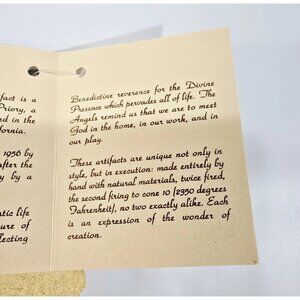 fact is a
Priory, a
ed in the
fornia.
1956 by
after the
y by a
stic life
ure of
lecting
Benedictine reverence for the Divine
Presence which pervades all of life. The
Angels remind us that we are to meet
God in the home, in our work, and in
our play.
These artifacts are unique not only in
style, but in execution: made entirely by
hand with natural materials, twice fired,
the second firing to cone 10 (2350 degrees
Fahrenheit), no two exactly alike. Each
is an expression of the wonder of
creation.